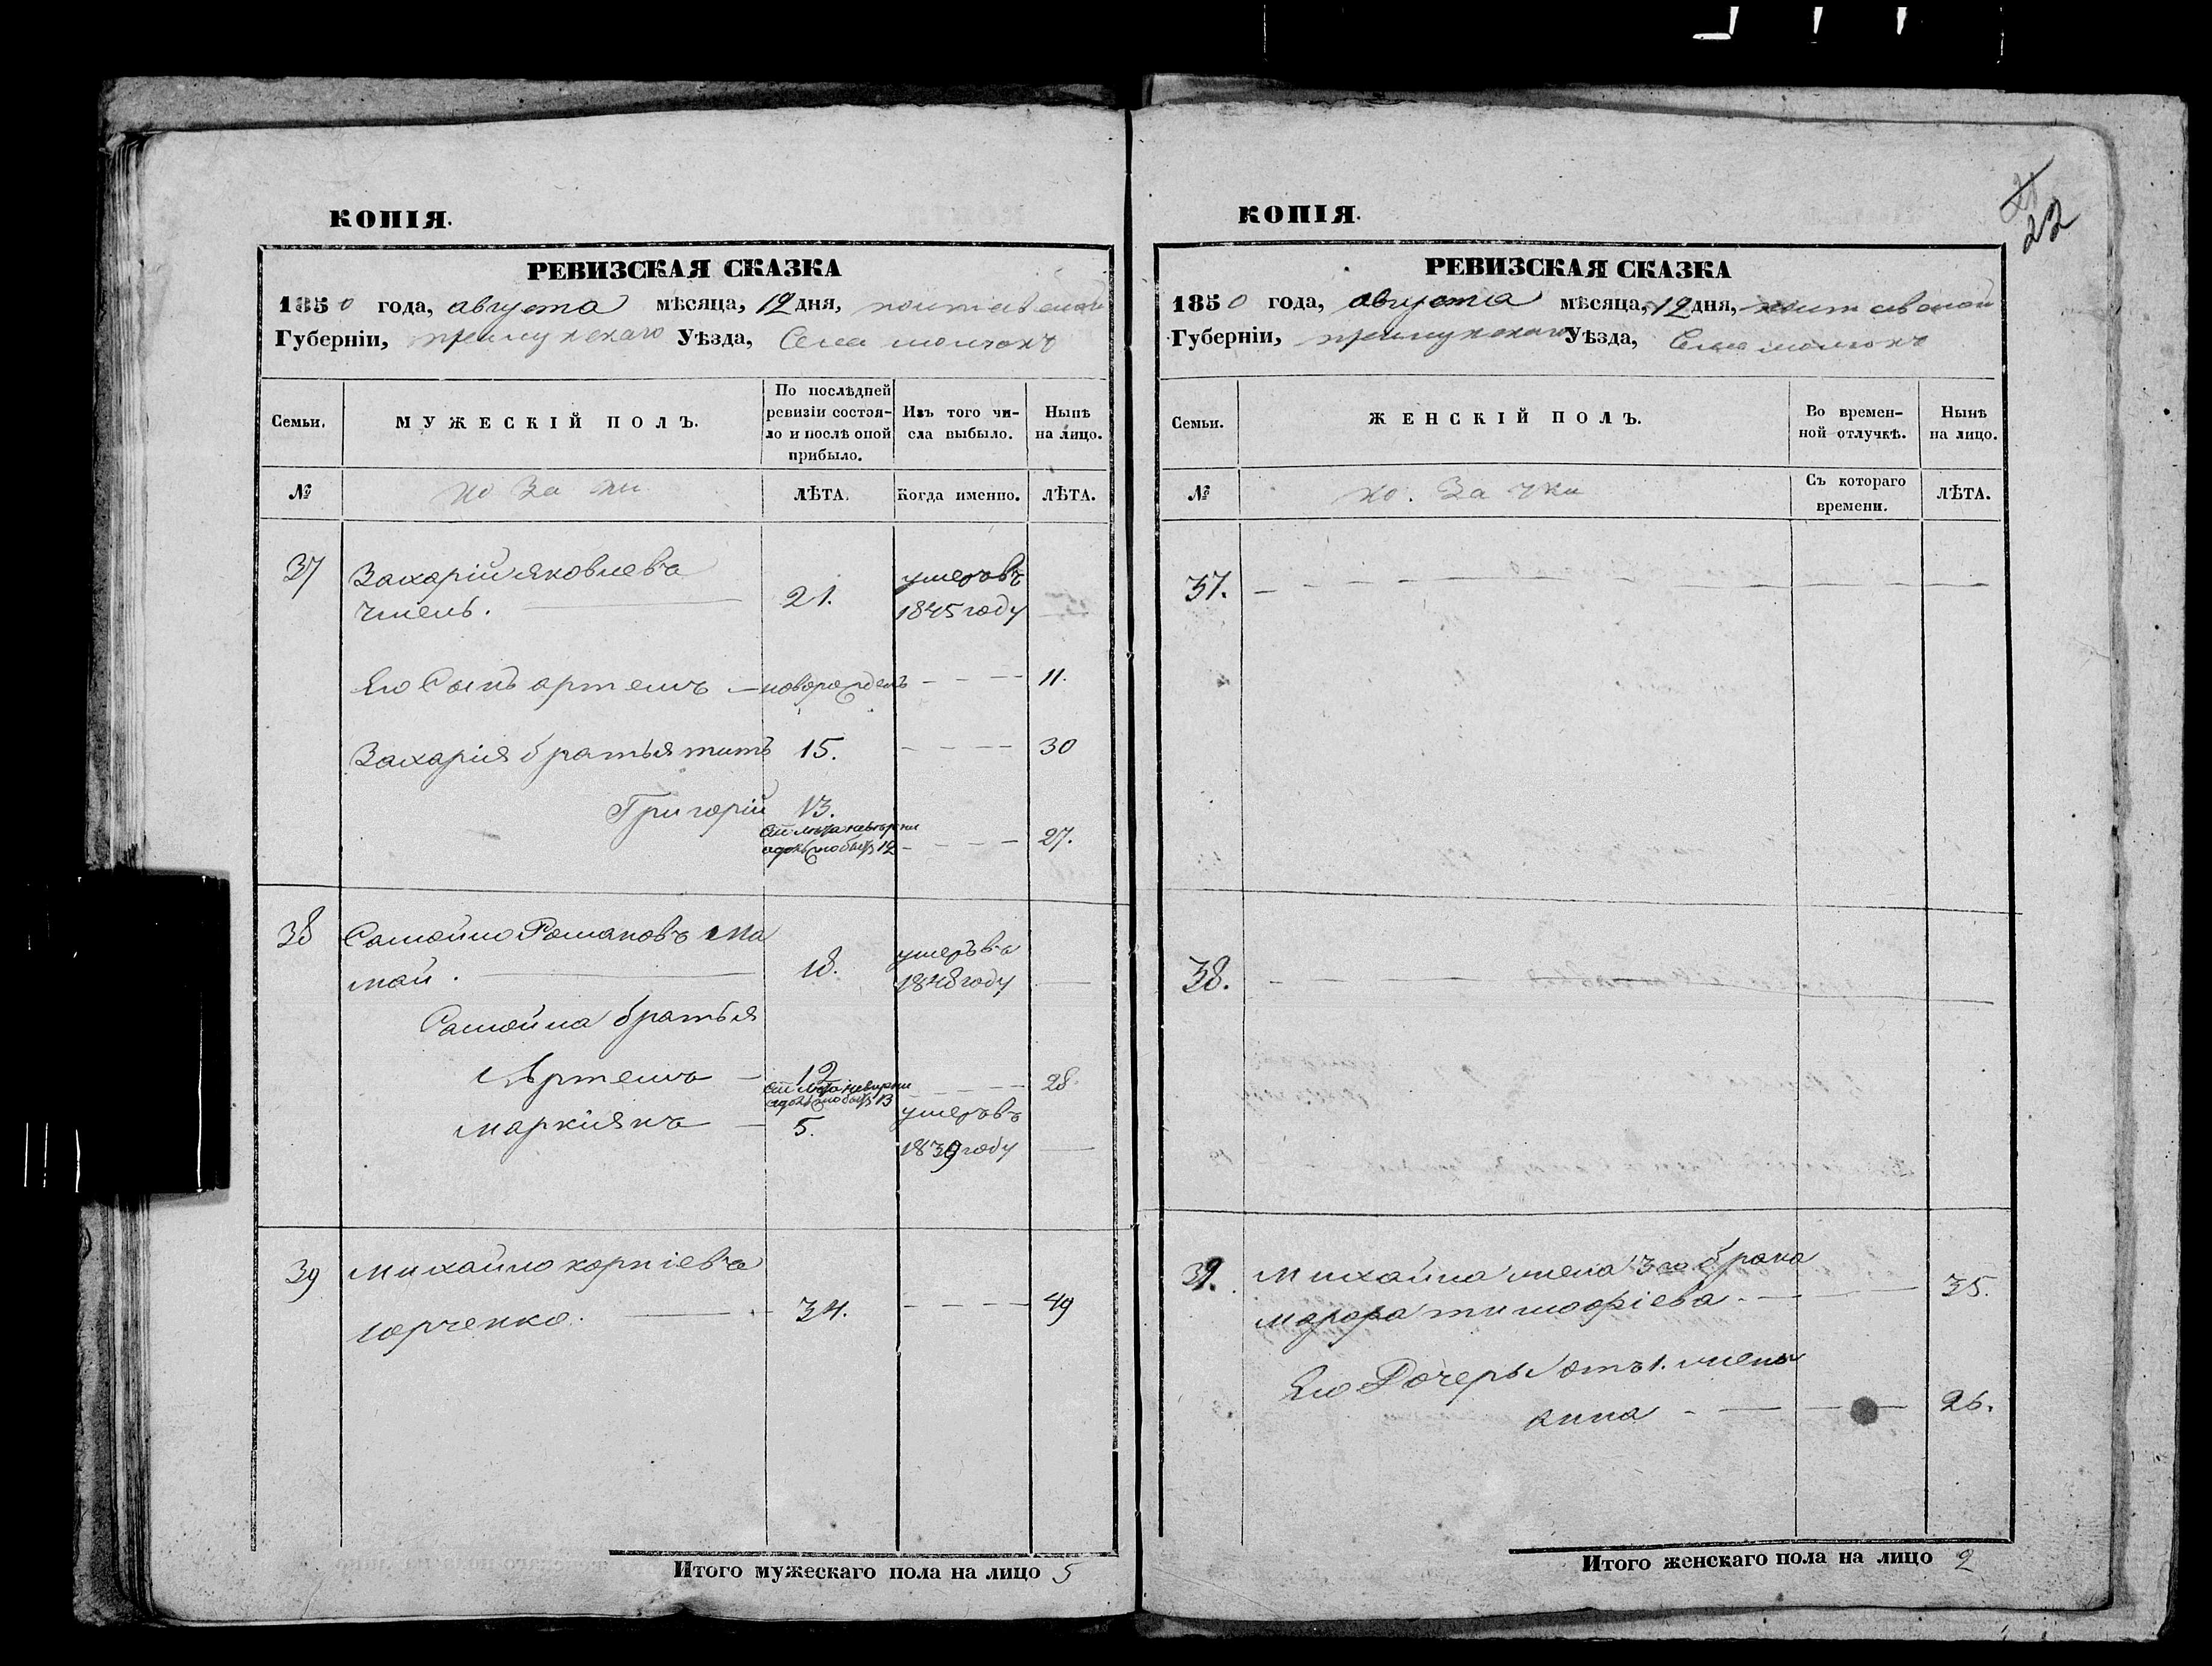 22
КОПІЯ.
РЕВИЗСКАЯ СКАЗКА
1850 года, августа мѣсяца, 12 дня, полтавской
Губерніи, прилукскаго Уѣзда, Села
Семьи.
МУЖЕСКІЙ ПОЛЪ.
По послѣдней ревизіи состоя-
ло и послѣ оной прибыло.
Изъ того чи-
сла выбыло.
Нынѣ
на лицо.
№
козаки
ЛѢТА.
Когда именно.
ЛѢТА.
37
Захарій яковлевъ
21.
умеръ въ
чмель.
1845 году
Его Сынъ артемъ
новорожденъ
11.
Захарія братья титъ
15.
30
Григорій
13.
27.
38
Самойло Романовъ Ма
май.
18.
умеръ въ
1848 году
Самойла братья
Артемъ
12
28
маркіянъ
5.
умеръ въ
1839 году
39
михайло корніевъ
юрченко.
34.
49
Итого мужескаго пола на лицо 5
КОПІЯ.
РЕВИЗСКАЯ СКАЗКА
1850 года, августа мѣсяца, 12 дня, полтавской
Губерніи, прилукскаго Уѣзда, Села
Семьи.
ЖЕНСКІЙ ПОЛЪ.
Во времен-
ной отлучкѣ.
Нынѣ
на лицо.
№
козачки
Съ котораго
времени.
ЛѢТА.
37.
38.
39.
михайла жена 3го брака
марфа тимофіева
35.
Его Дочерь отъ 1. жены
анна
26.
Итого женскаго пола на лицо 2